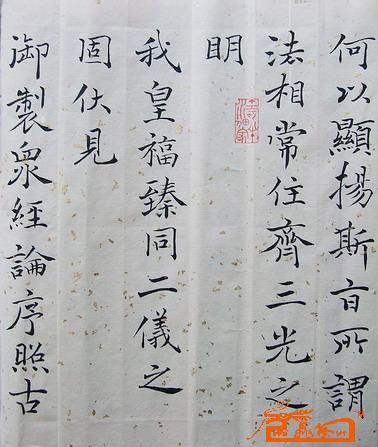 何以顯揚斯旨所謂
法相常住齊三光之
明
我皇福臻同二儀之
固伏見
御製眾經論序照古